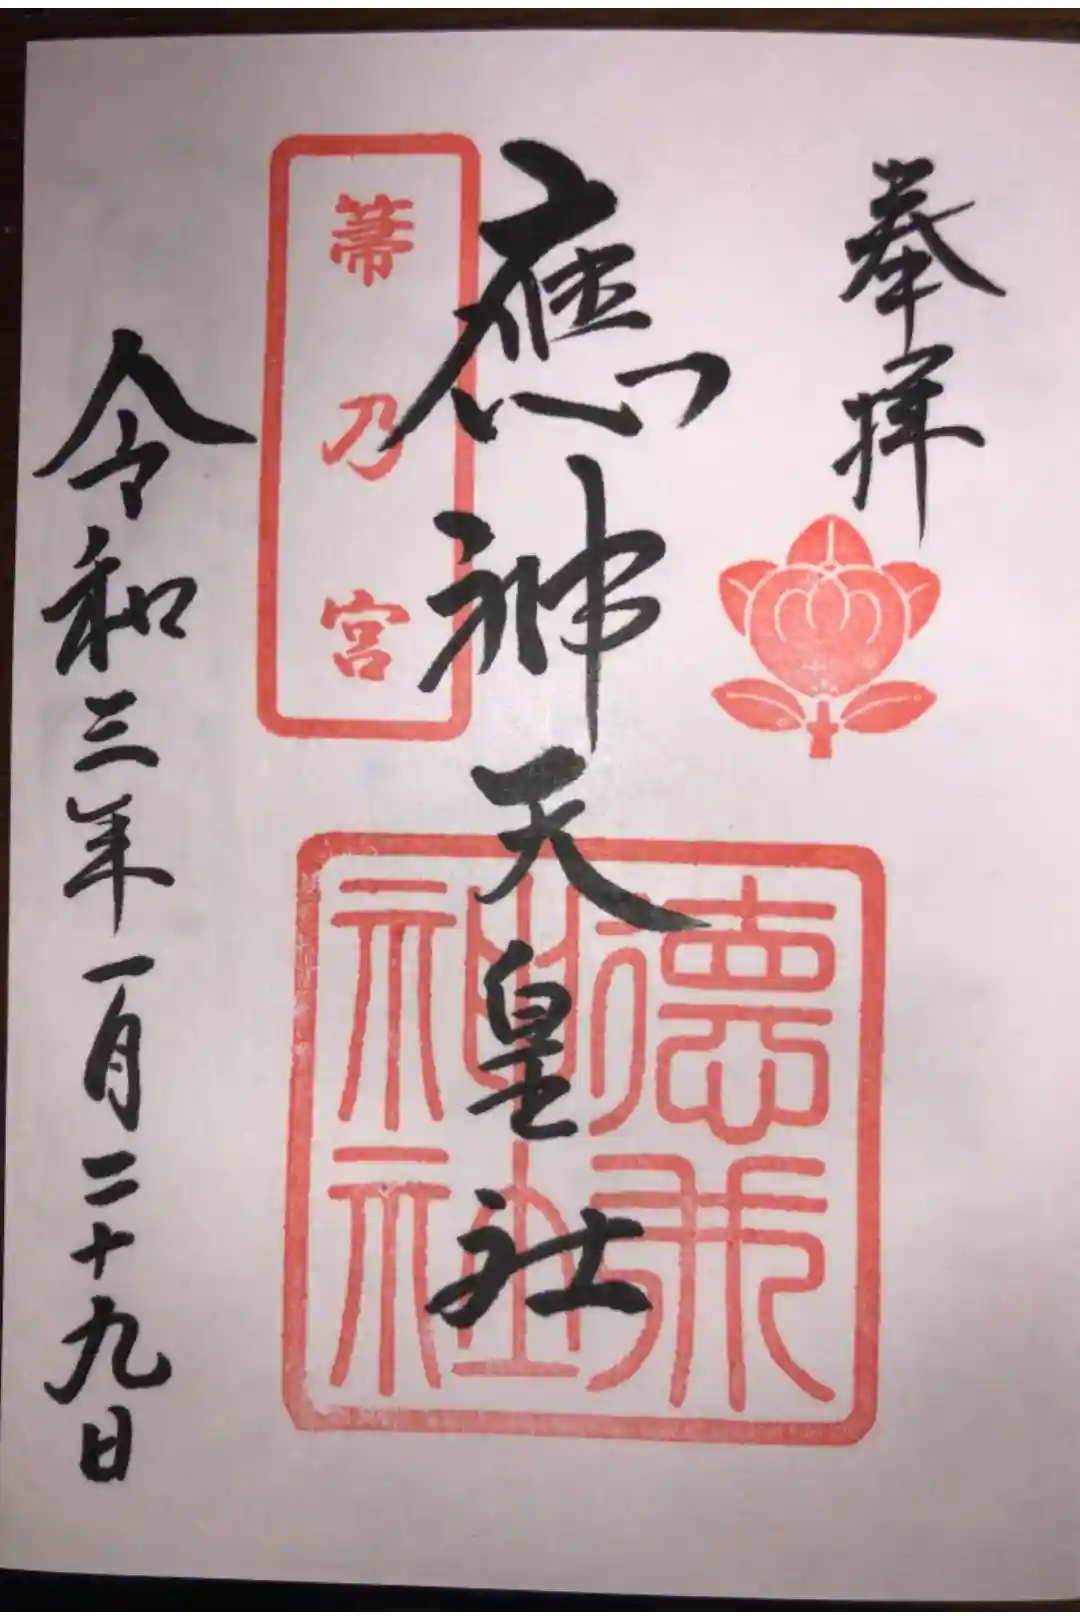 奉拝
應神天皇社
箒乃宮
德
神社
令和三年一月二十九日